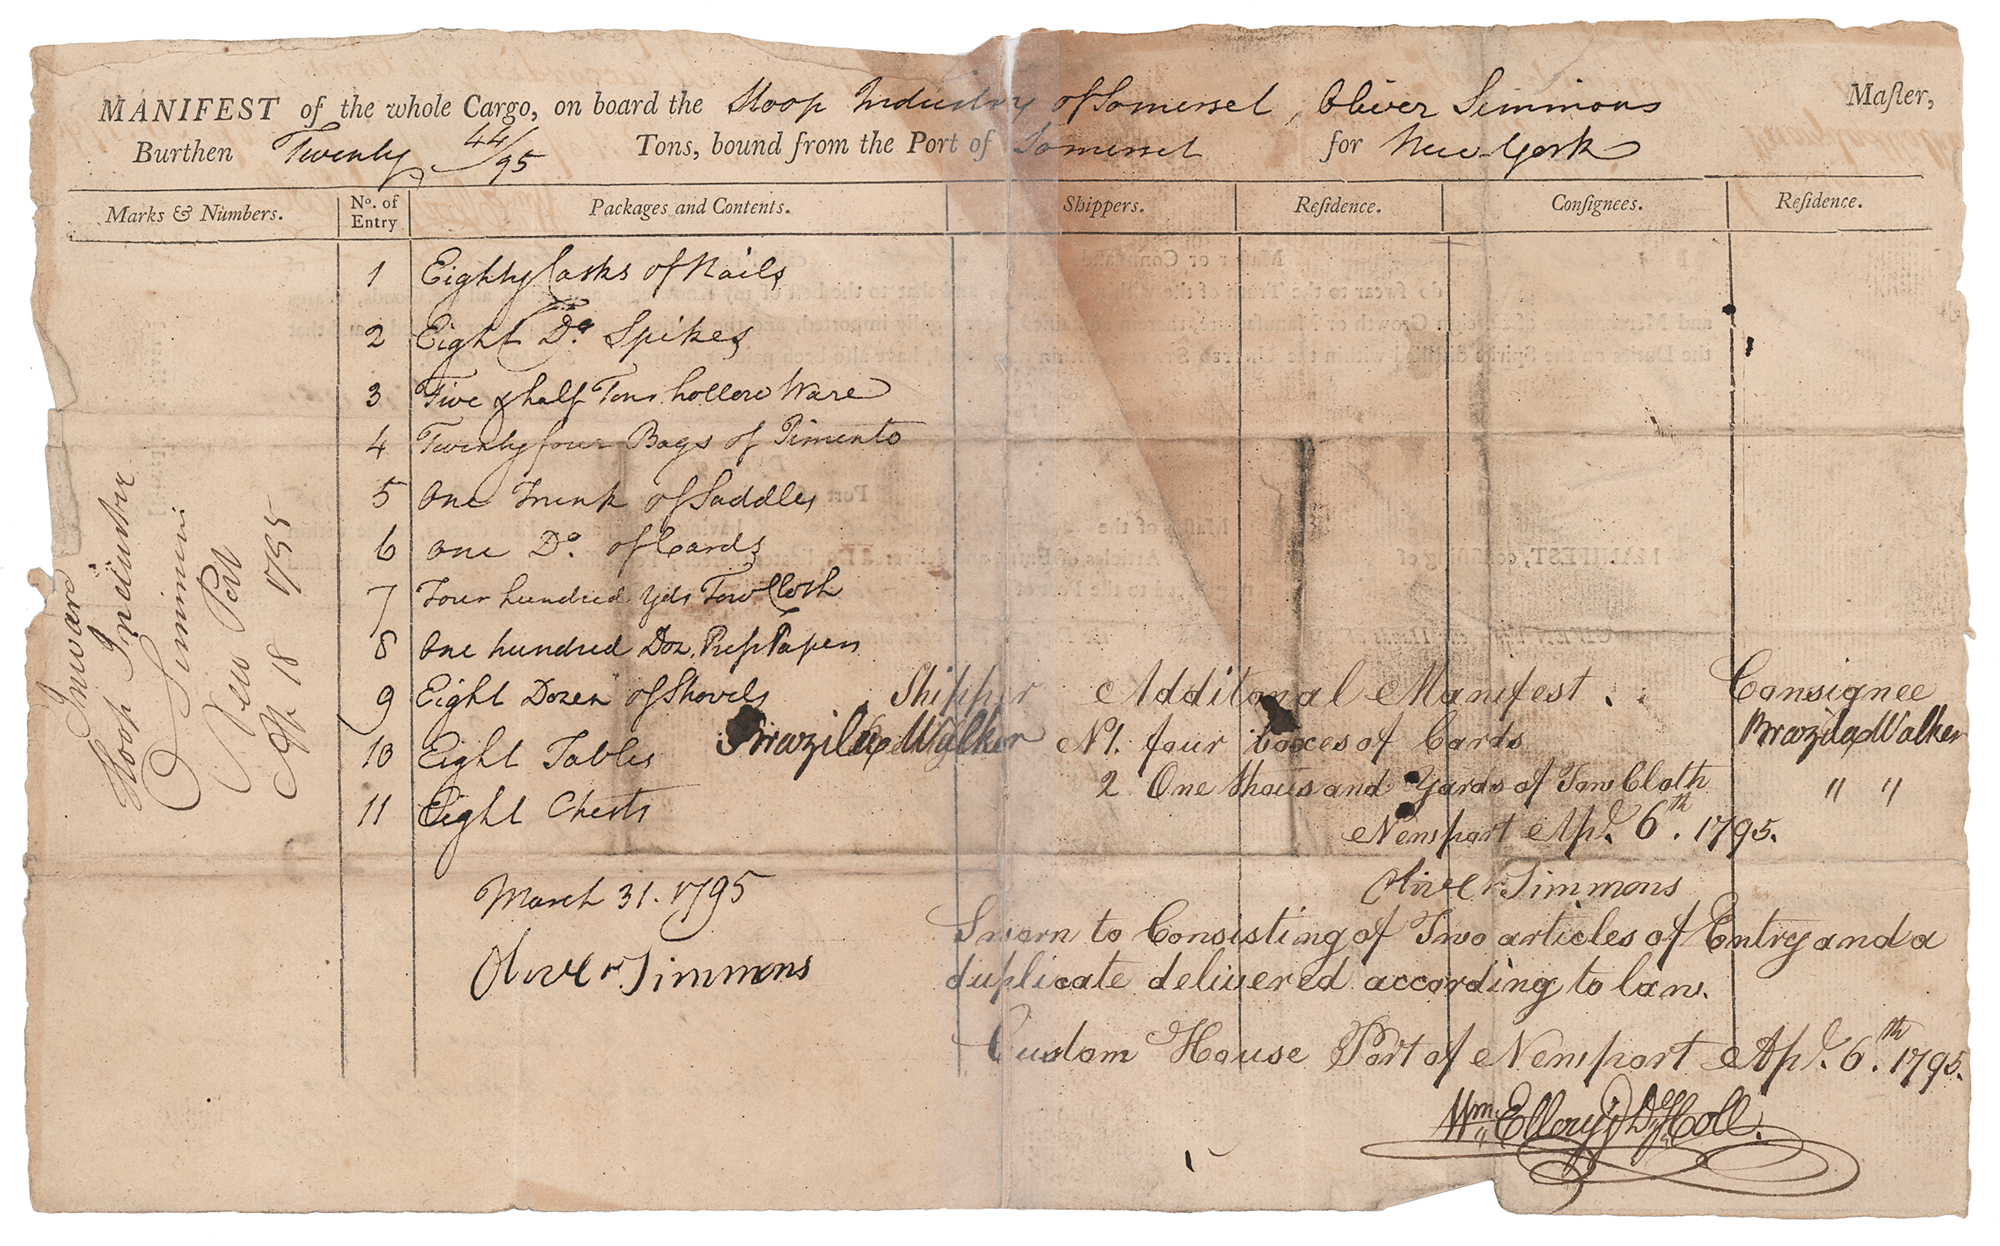 MANIFEST of the whole Cargo, on board the Sloop Industry of Somerset, Oliver Simmons Maſter,
Burthen Twenty 44/95 Tons, bound from the Port of Somerset for New York
Marks & Numbers. No. of Entry Packages and Contents. Shippers. Reſidence. Conſignees. Reſidence.
1 Eighty Casks of Nails
2 Eight Do. Spikes
3 Five & half Tons hollow Ware
4 Twenty four Bags of Pimento
5 One Trunk of Saddles
6 One Do. of Cards
7 Four hundred Yds Tow Cloth
8 One hundred Doz. Press Papers
9 Eight Dozen of Shovels
10 Eight Tables
11 Eight Chests
March 31. 1795
Oliver Simmons
Shipper Additonal Manifest. Consignee
Brazila Walker No1. four boxes of Cards Brazila Walker
2 One thousand Yards of Tow Cloth " "
Newport Apl. 6th. 1795.
Oliver Simmons
Sworn to Consisting of Two articles of Entry and a
duplicate delivered according to law.
Custom House Port of Newport Apl. 6th. 1795.
Wm Ellery Dy Coll.
Inward
Sloop Industry
Simmons
New Port
Ap 18 1795